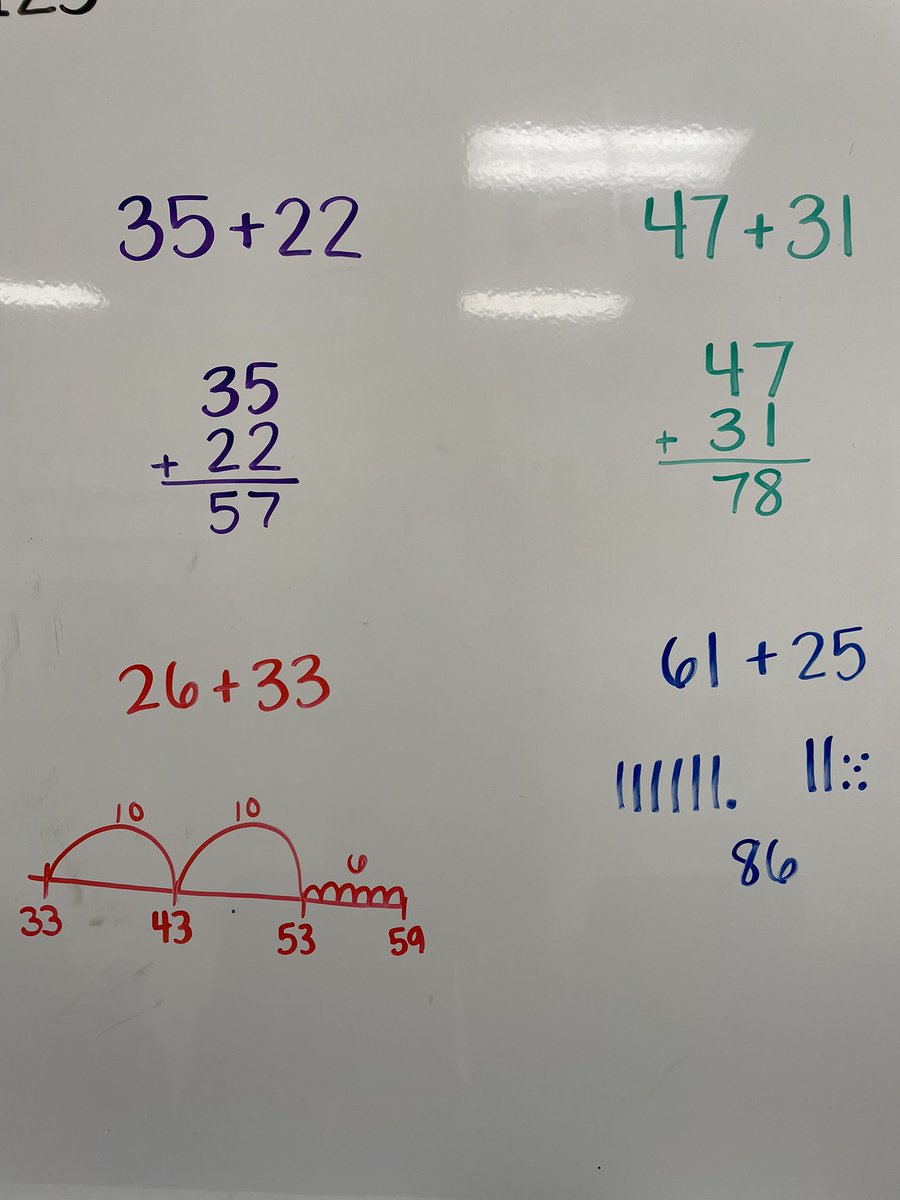 35+22
35
+ 22
57
47+31
47
+ 31
78
26+33
10 10 6
33 43 53 59
61+25
86